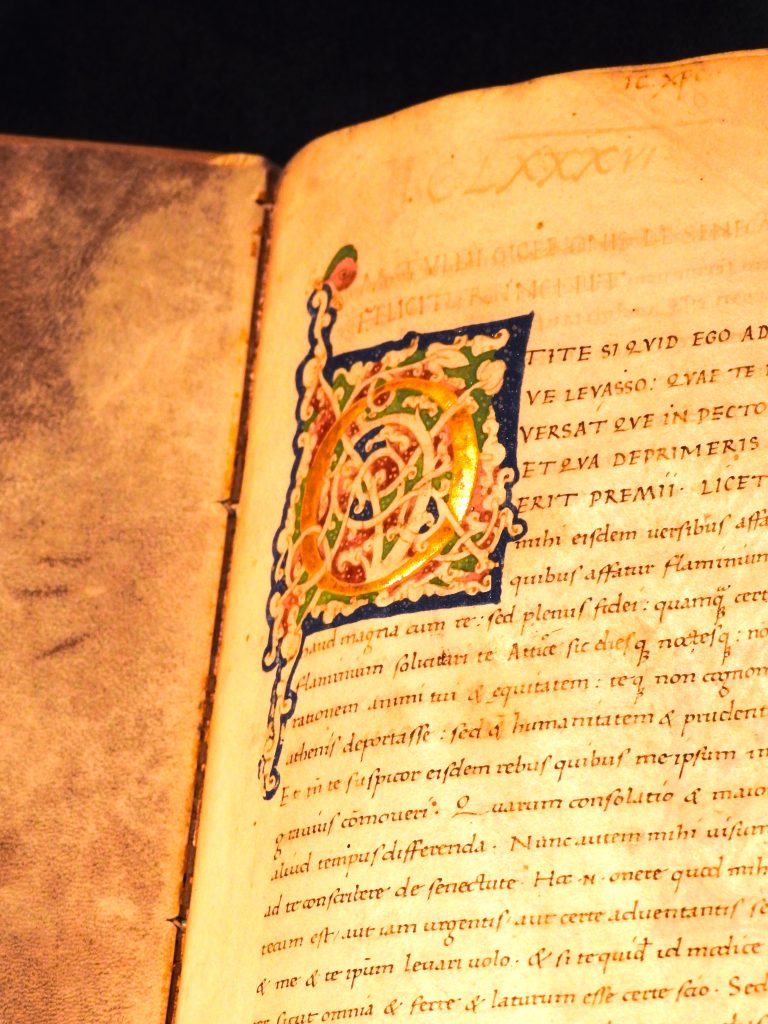 IC. XPC.
CLXXXVI
TITE SI QVID EGO AD
VE LEVASSO: QVAE TE
VERSAT QVE IN PECTO
ET QVA DEPRIMERIS
ERIT PREMII· LICET
mihi eisdem versibus affa
quibus affatur flaminium
haud magna cum re: sed plenus fidei: quamq̃ cert
flaminium solicitari te Attice sic diesq; noctesq; no
rationem animi tui & equitatem: teq; non cognom
athenis deportasse: sed & humanitatem & prudent
Et in te suspicor eisdem rebus quibus me ipsum in
gravius cōmoveri· Quarum consolatio & maio
aliud tempus differenda· Nunc autem mihi visum
ad te conscribere de senectute· Hoc ·N· onere quod mih
tecum est, aut iam urgentis, aut certe adventantis se
& me & te ipūm levari volo· & si te quid̃ id modice
sicut omnia & ferre & laturum esse certe scio· Sed